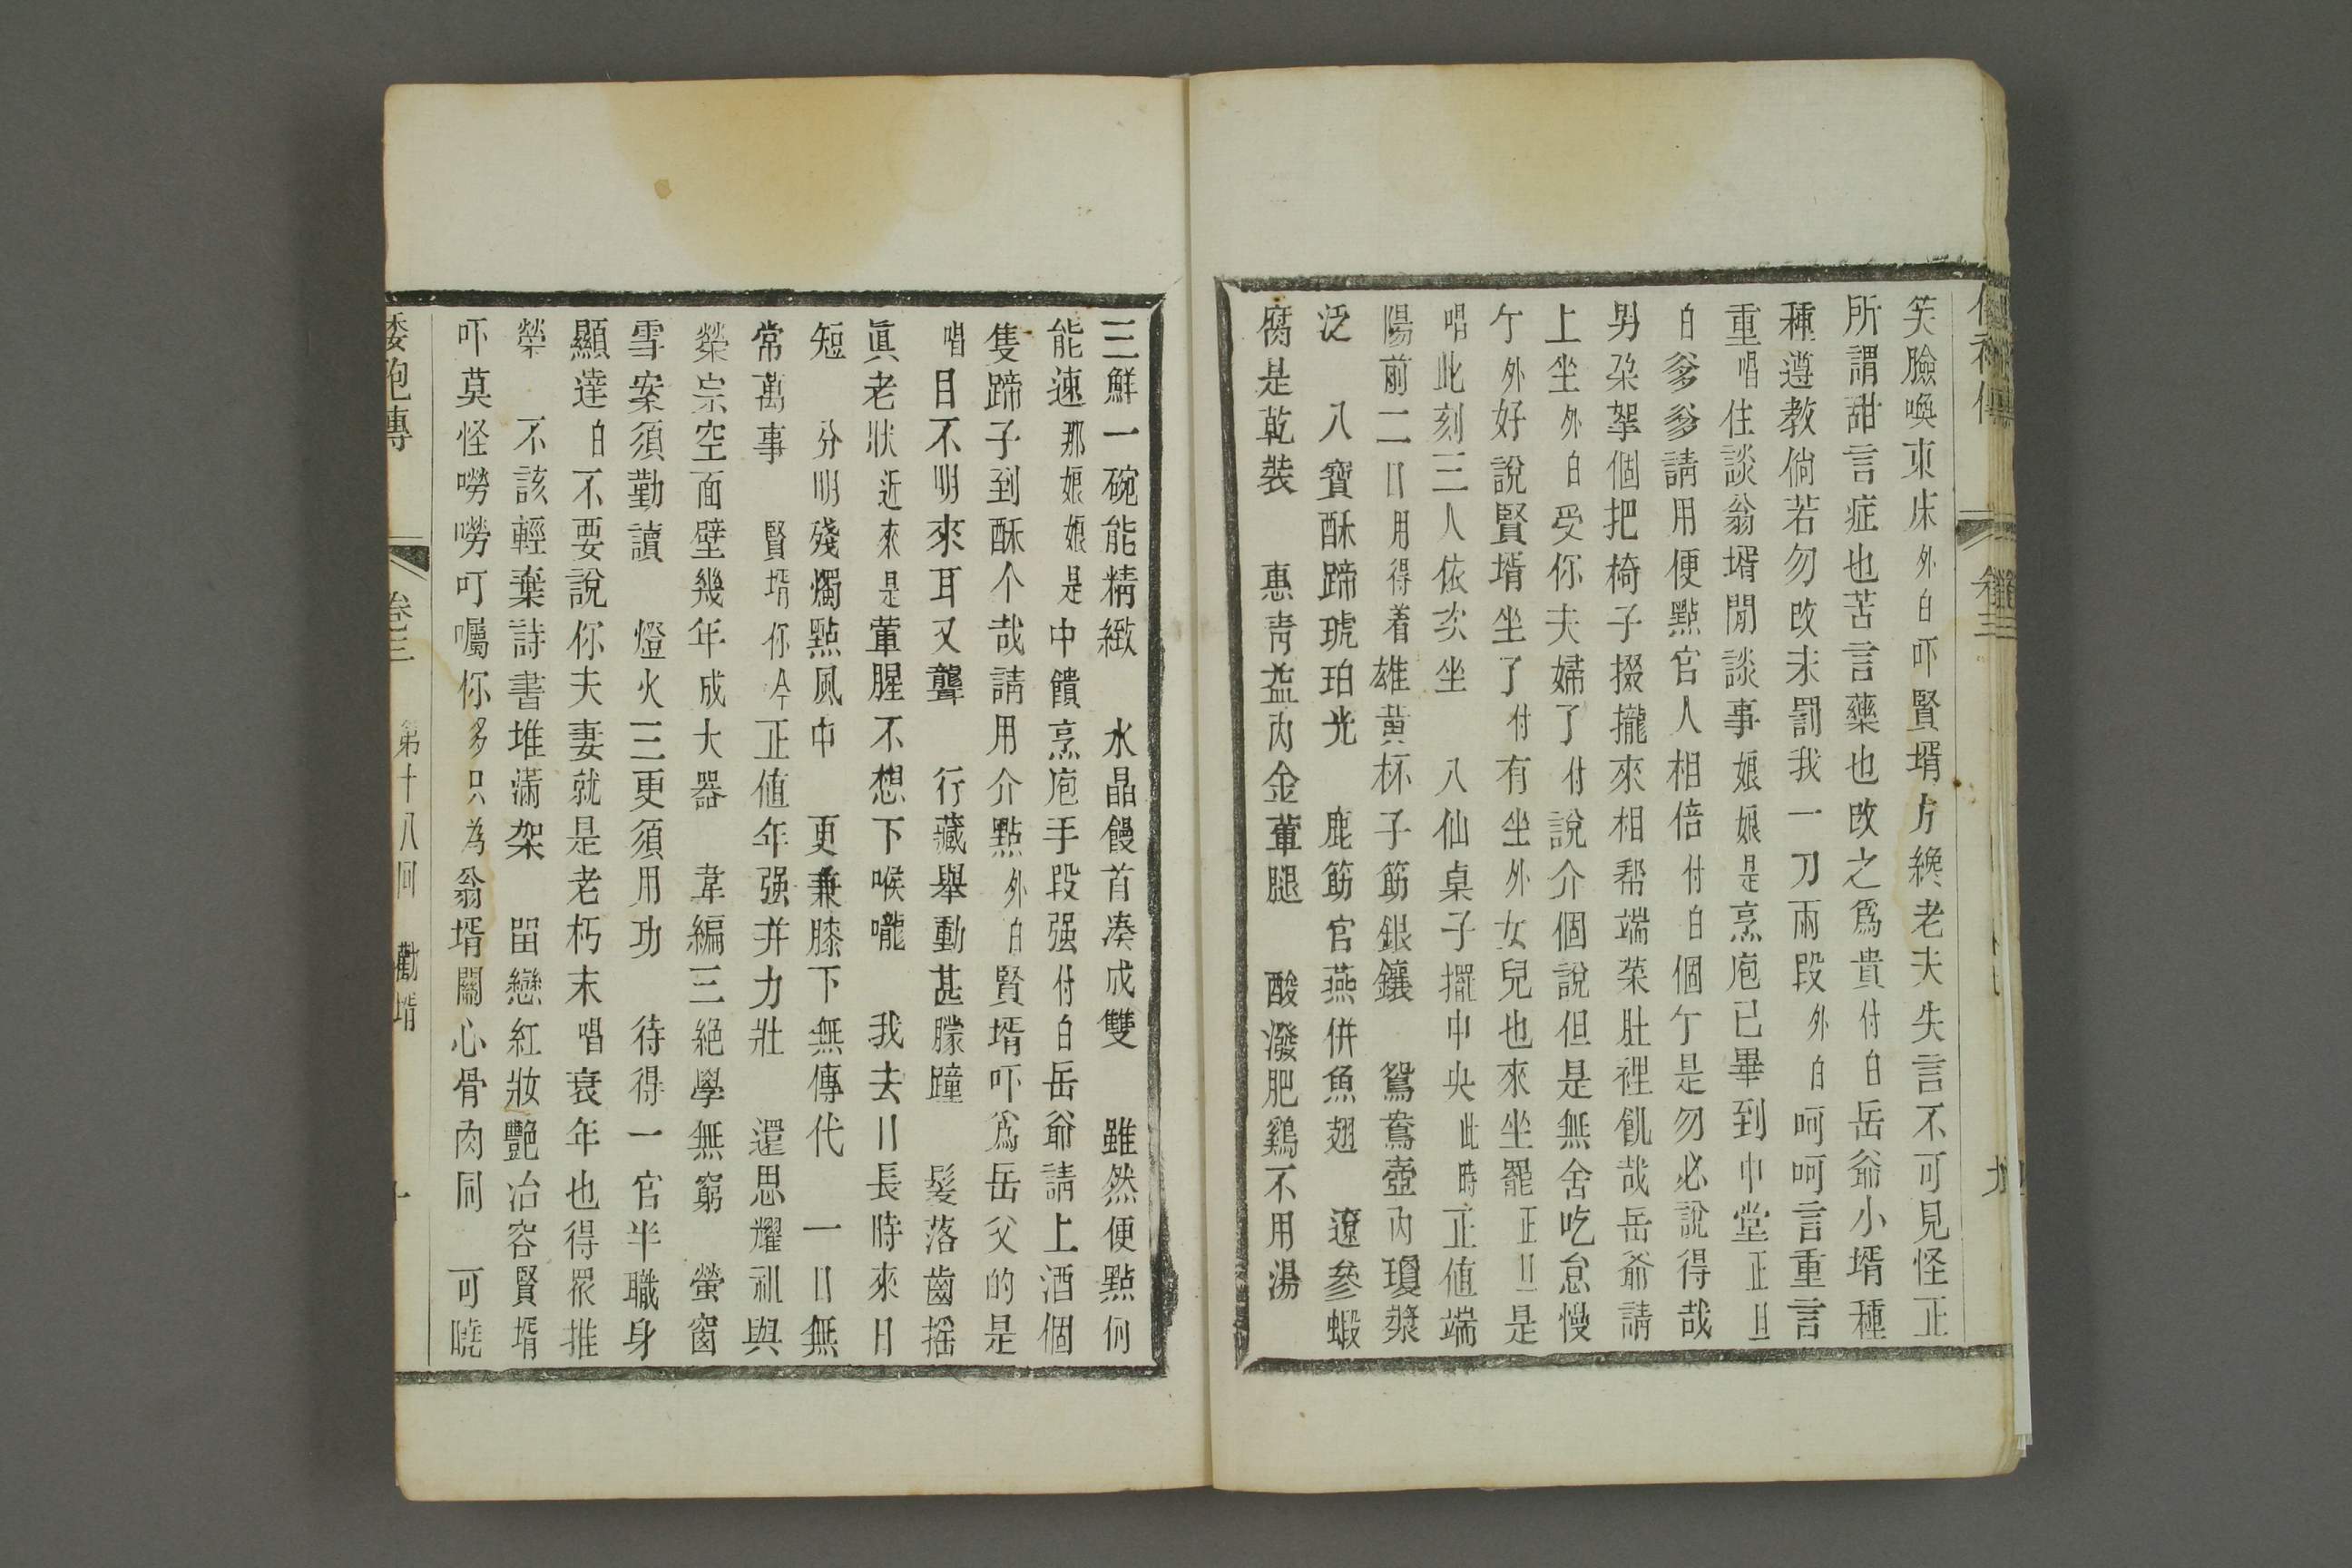 笑臉喚東床外白吓賢壻方纔老夫失言不可見怪正
所謂甜言症也苦言藥也改之爲貴付白岳爺小壻種
種遵教倘若勿改未罰我一刀兩段外白呵呵言重言
重唱住談翁壻閒談事娘娘是烹庖已畢到中堂正旦
白爹爹請用便點官人相倍付白個亇是勿必說得哉
男朶挐個把椅子掇攏來相帮端菜肚裡飢哉岳爺請
上坐外白受你夫婦了付說介個說但是無舍吃怠慢
亇外好說賢壻坐了付有坐外女兒也來坐罷正旦是
唱此刻三人依次坐 八仙桌子擺中央此時正值端
陽前二日用得着雄黄杯子筯銀鑲 鴛鴦壺内瓊漿
泛 八寶酥蹄琥珀光 鹿筯官燕併魚翅 遼參蝦
腐是乾裝 惠靑葢内金華腿 酸潑肥鷄不用湯
三鮮一碗能精緻 水晶饅首凑成雙 雖然便點何
能速那娘娘是中饋烹庖手段强付白岳爺請上酒個
隻蹄子到酥个哉請用介點外白賢壻吓爲岳父的是
唱目不明來耳又聾 行藏舉動甚朦朣 髮落齒摇
眞老狀近來是葷腥不想下喉嚨 我去日長時來日
短 分明殘燭點風中 更兼膝下無傳代 一日無
常萬事 賢壻你今正值年强并力壯 還思耀祖與
榮宗空面壁幾年成大器 韋編三絕學無窮 螢窗
雪案須勤讀 燈火三更須用功 待得一官半職身
顯達白不要說你夫妻就是老朽末唱衰年也得衆推
榮 不該輕棄詩書堆滿架 畱戀紅妝艷冶容賢壻
吓莫怪嘮嘮叮囑你多只為翁壻關心骨肉同 可曉
倭袍傳 卷三 第十八回 勸壻 十